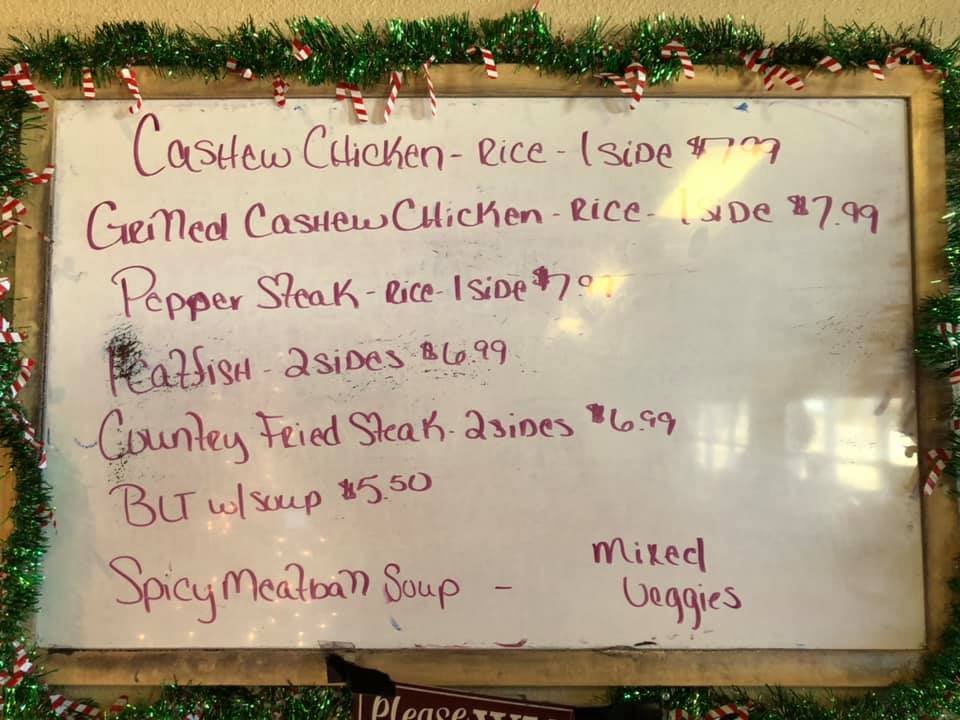 Cashew Chicken - Rice - 1 side $7.99
Grilled Cashew Chicken - Rice - 1 side $7.99
Pepper Steak - Rice - 1 side $7.99
Catfish - 2 sides $6.99
Country Fried Steak - 2 sides $6.99
BLT w/soup $5.50
Spicy Meatball Soup -
Mixed
Veggies
Please